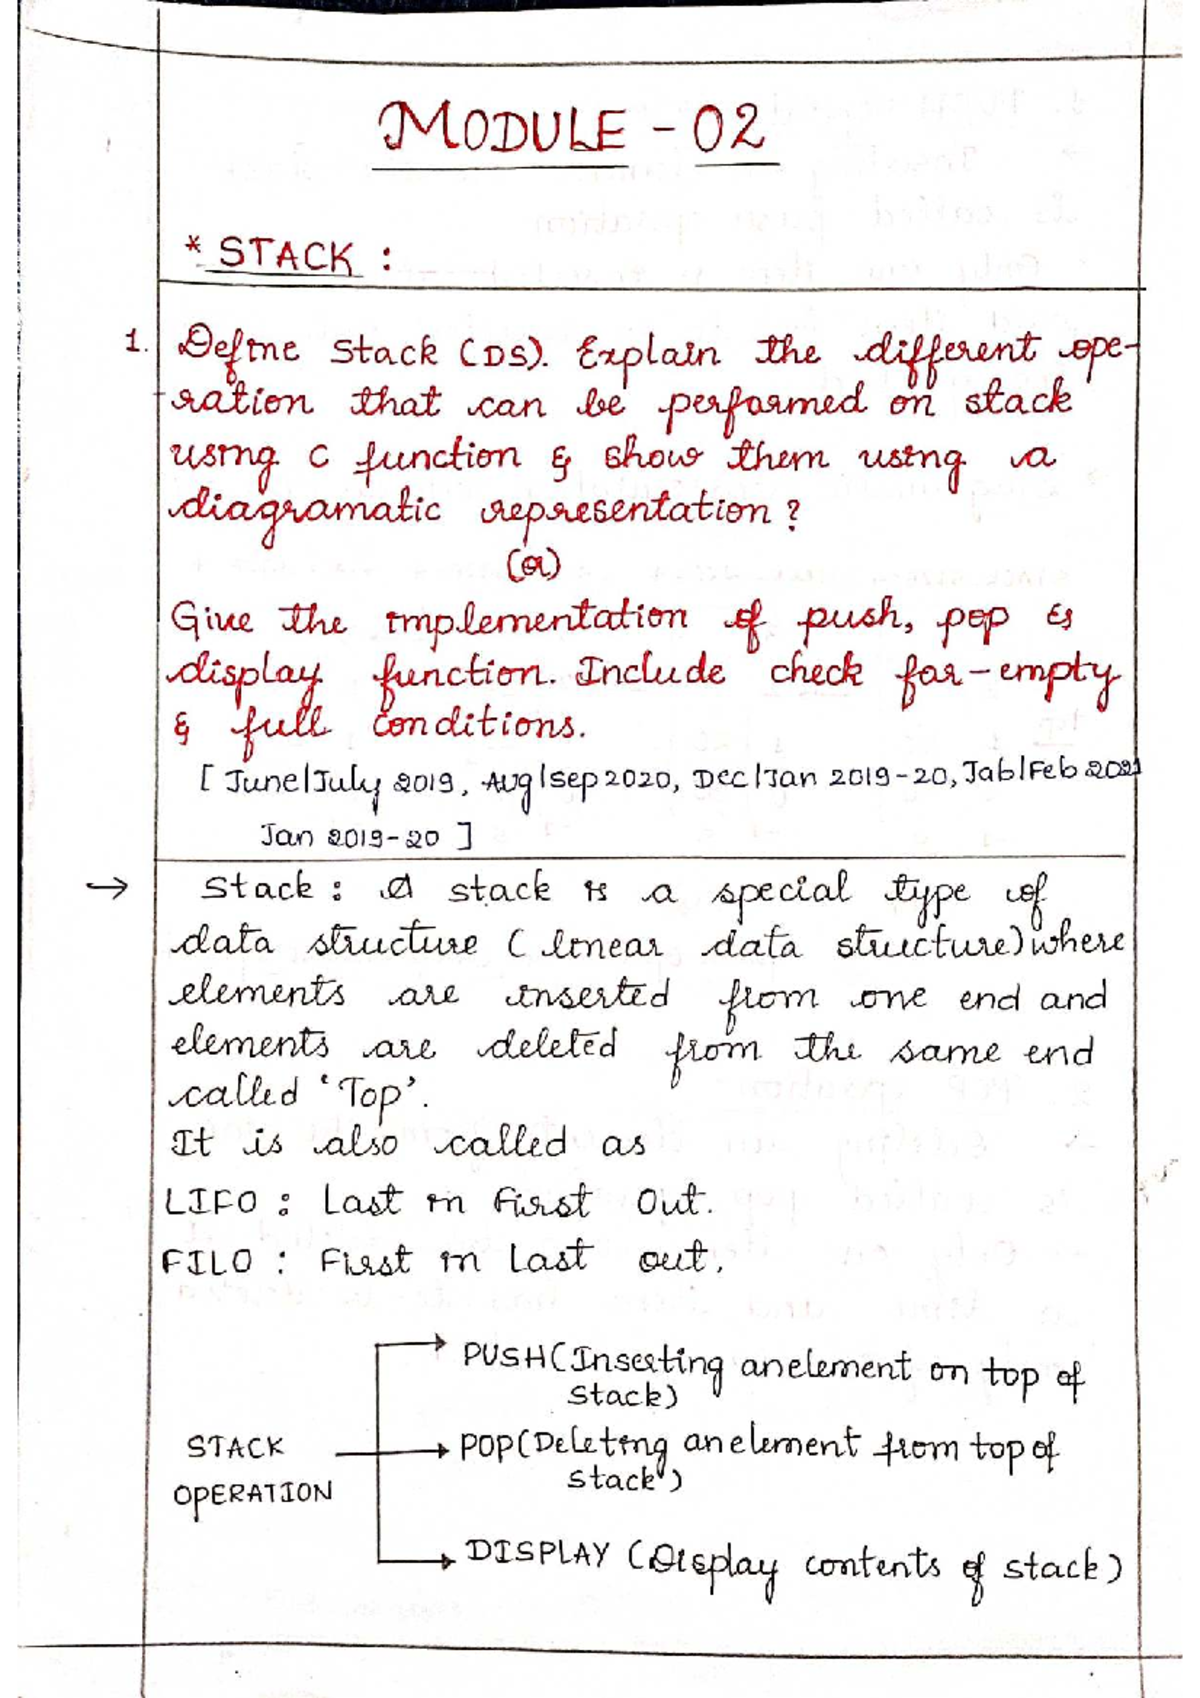 MODULE - 02
* STACK :
1. Define Stack (DS). Explain the different ope-
ration that can be performed on stack
using C function & show them using a
diagramatic representation?
(or)
Give the implementation of push, pop &
display function. Include check for-empty
& full conditions.
[ June|July 2019, Aug|Sep 2020, Dec|Jan 2019-20, Jab|Feb 2021
Jan 2019-20 ]
→ Stack : A stack is a special type of
data structure ( linear data structure) where
elements are inserted from one end and
elements are deleted from the same end
called 'Top'.
It is also called as
LIFO : Last in First Out.
FILO : First in Last out.
PUSH (Inserting an element on top of
stack)
STACK
OPERATION
POP (Deleting an element from top of
stack)
DISPLAY (Display contents of stack)